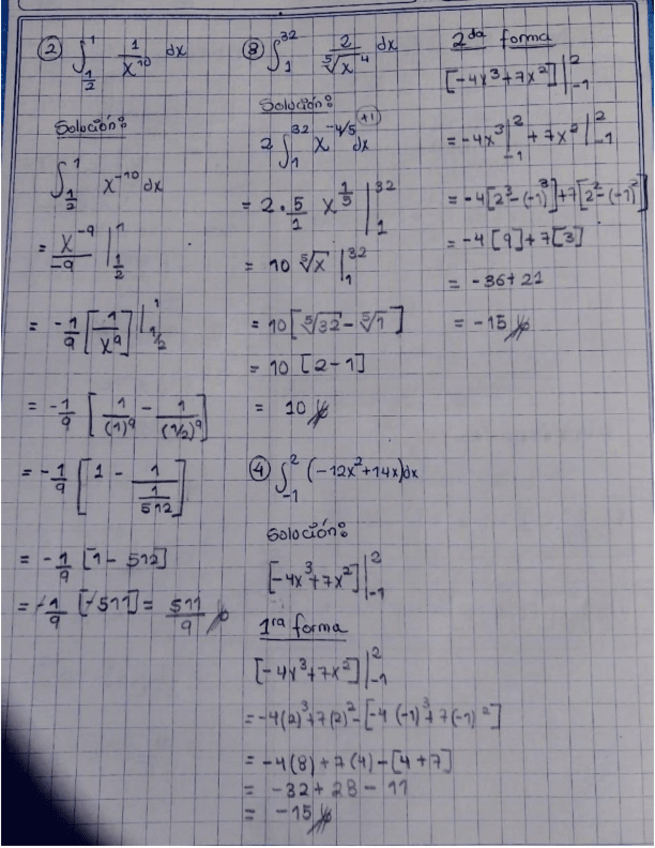 ② ∫_{1/2}^{1} 1/x^{10} dx
Solución:
∫_{1/2}^{1} x^{-10} dx
= x^{-9}/-9 |_{1/2}^{1}
= -1/9 [1/x^9] |_{1/2}^{1}
= -1/9 [1/(1)^9 - 1/(1/2)^9]
= -1/9 [1 - 1/(1/512)]
= -1/9 [1 - 512]
= -1/9 [-511] = 511/9
⑧ ∫_{1}^{32} 2/⁵√x^4 dx
Solución:
2 ∫_{1}^{32} x^{-4/5 +1} dx
= 2 · 5/1 x^{1/5} |_{1}^{32}
= 10 ⁵√x |_{1}^{32}
= 10 [⁵√32 - ⁵√1]
= 10 [2-1]
= 10
④ ∫_{-1}^{2} (-12x^2+14x)dx
Solución:
[-4x^3+7x^2] |_{-1}^{2}
1ra forma
[-4x^3+7x^2] |_{-1}^{2}
= -4(2)^3+7(2)^2-[-4(-1)^3+7(-1)^2]
= -4(8)+7(4)-[4+7]
= -32+28-11
= -15
2da forma
[-4x^3+7x^2] |_{-1}^{2}
= -4x^3 |_{-1}^{2} + 7x^2 |_{-1}^{2}
= -4[2^3-(-1)^3]+7[2^2-(-1)^2]
= -4[9]+7[3]
= -36+21
= -15